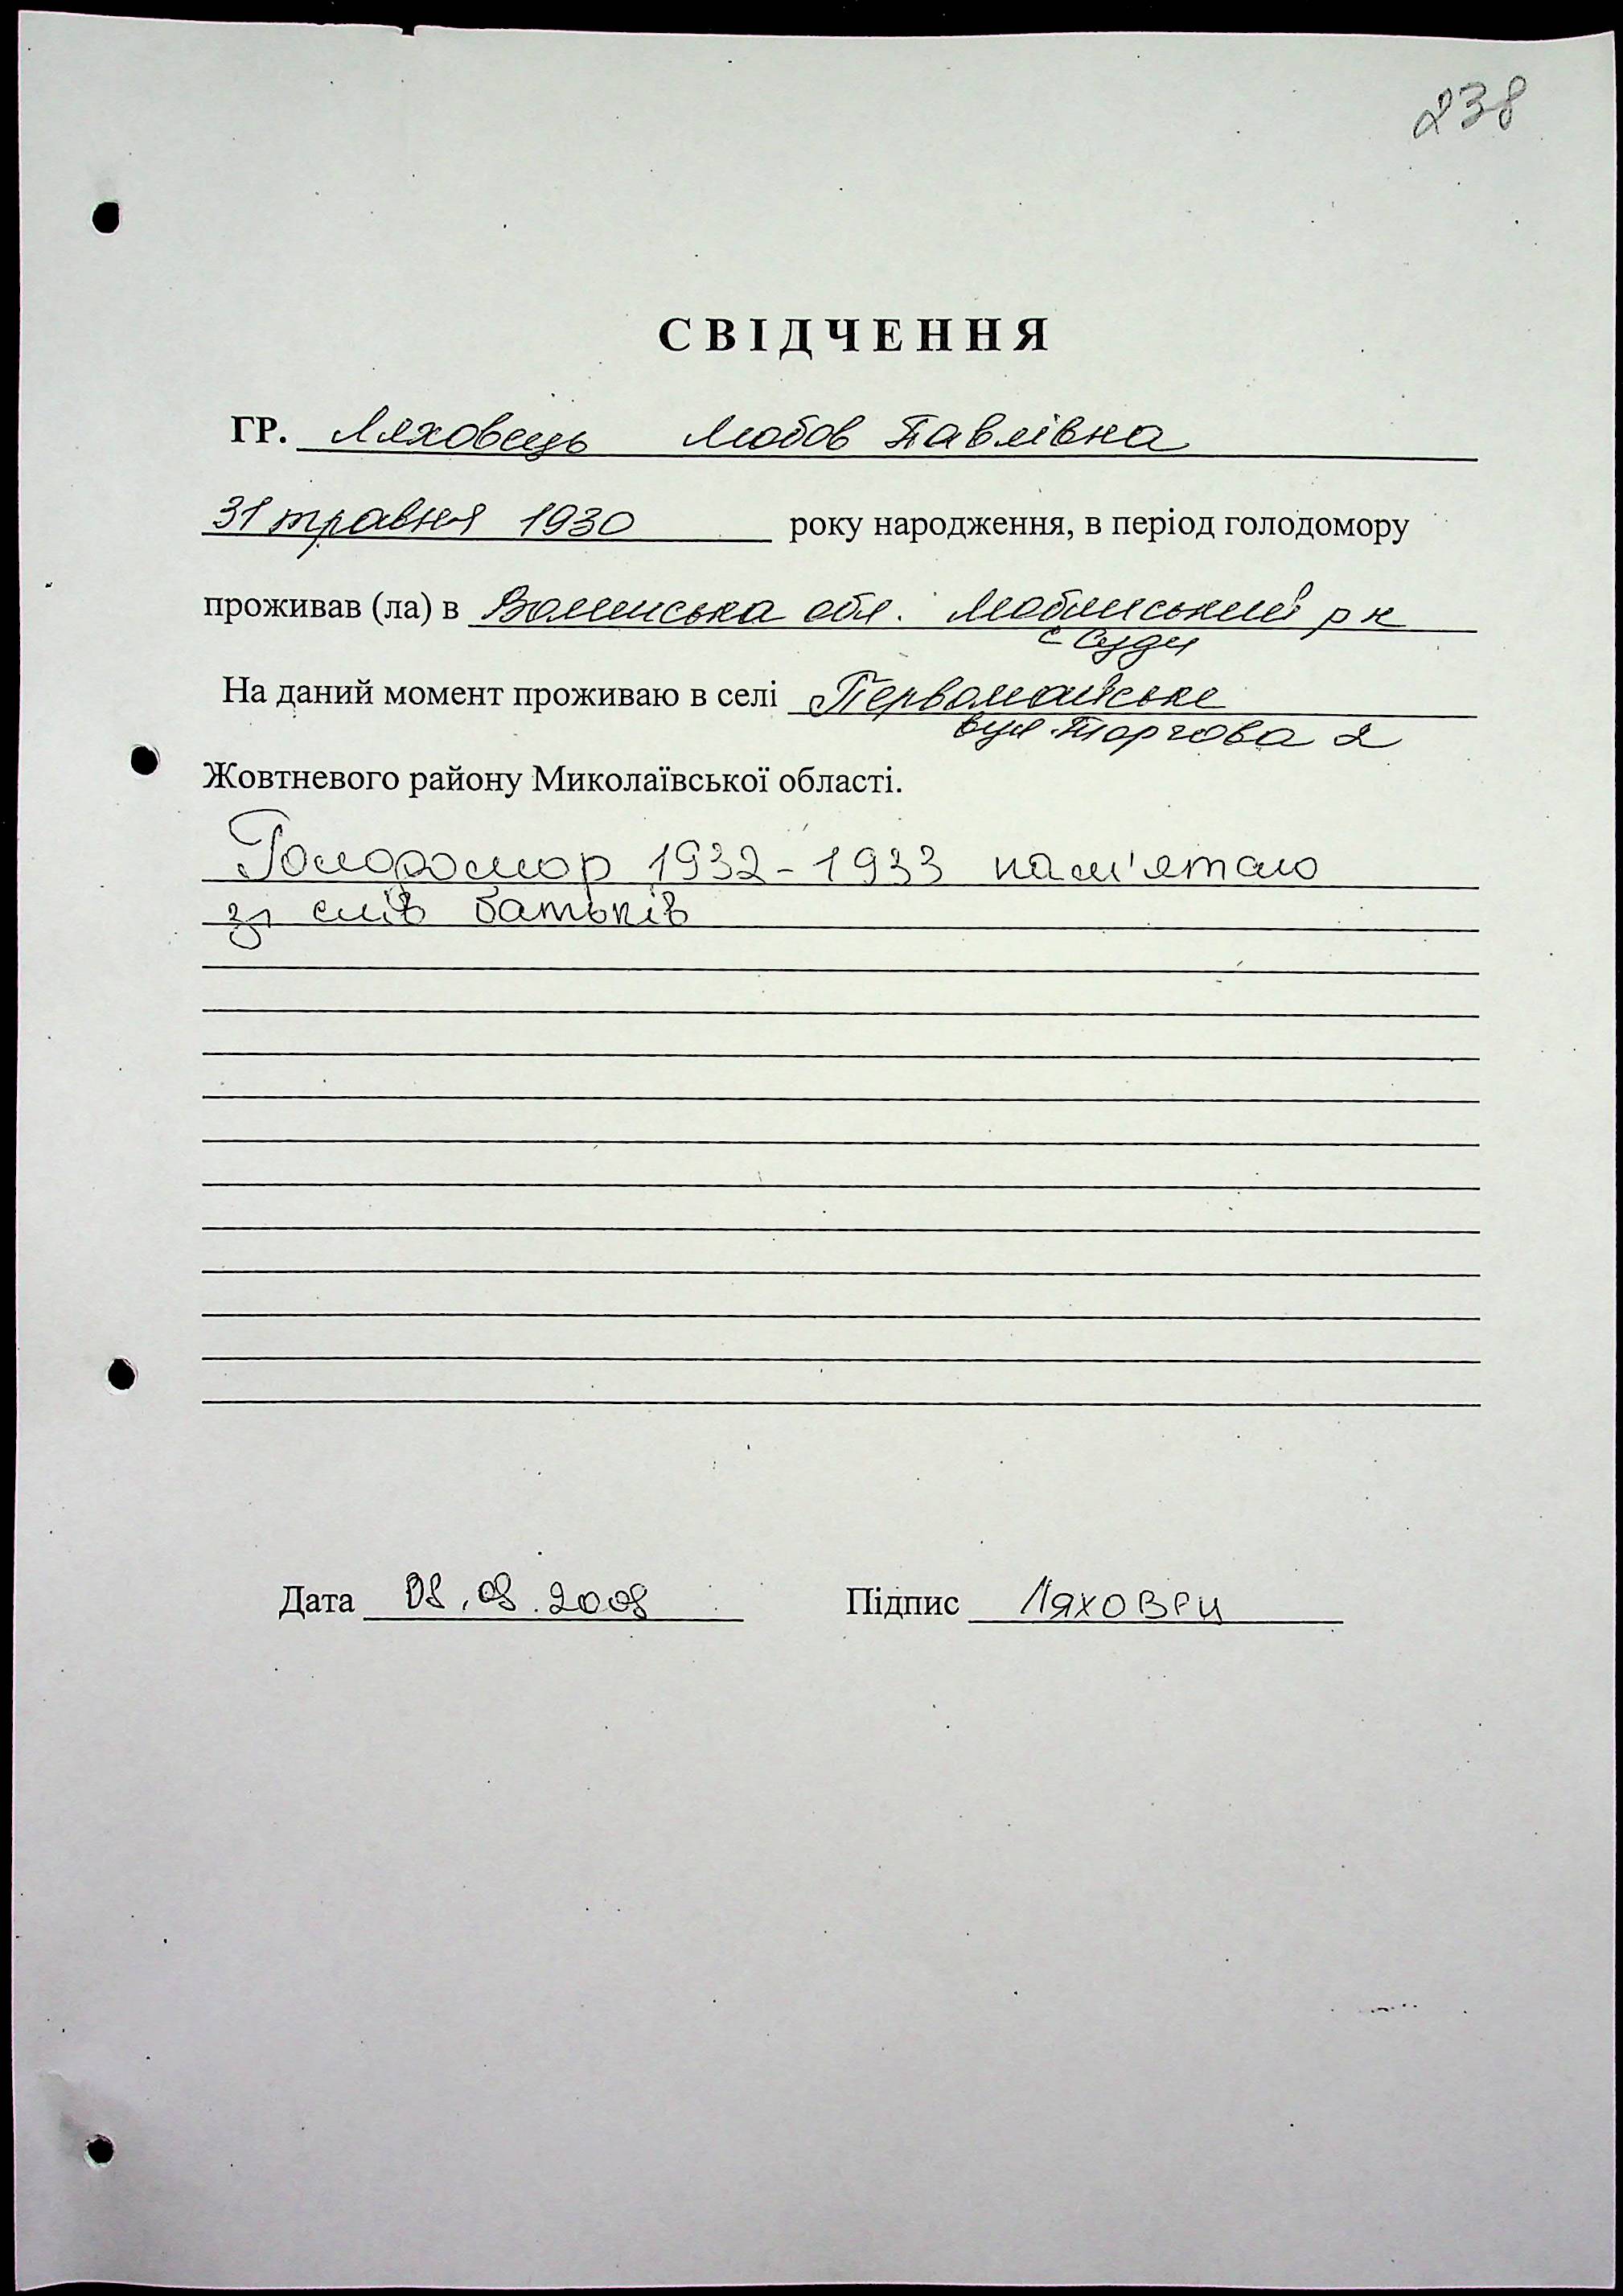 238
СВІДЧЕННЯ
ГР. Ляховець Любов Павлівна
31 травня 1930 року народження, в період голодомору
проживав (ла) в Волинська обл. Люблинський р н
с Суди
На даний момент проживаю в селі Первомайське
вул. Торгова 2
Жовтневого району Миколаївської області.
Голодомор 1932-1933 пам'ятаю
зі слів батьків
Дата 08.08.2008 Підпис Ляховец